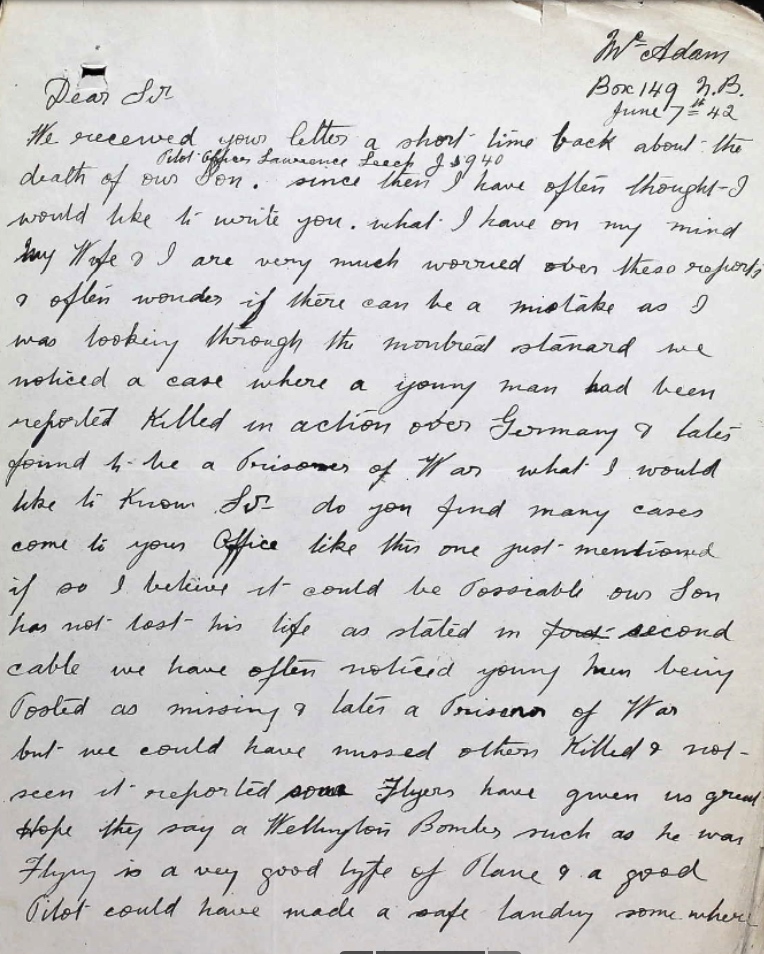 Mc Adam
Box 149 N.B.
June 7th 42
Dear Sir
We received your letter a short time back about the
Pilot Officer Lawrence Leech J
death of our Son. since then I have often thought I
would like to write you. what I have on my mind
my Wife & I are very much worried over these reports
& often wonder if there can be a mistake as I
was looking through the montreal stanard we
noticed a case where a young man had been
reported Killed in action over Germany & later
found to be a Prisoner of War what I would
like to Know Sir do you find many cases
come to your Office like this one just mentioned
if so I beleive it could be Possiable our Son
has not lost his life as stated in first second
cable we have often noticed young men being
Posted as missing & later a Prisoner of War
but we could have missed others Killed & not
seen it reported some Flyers have given us great
Hope they say a Wellington Bomber such as he was
Flying is a very good type of Plane & a good
Pilot could have made a safe landing some where